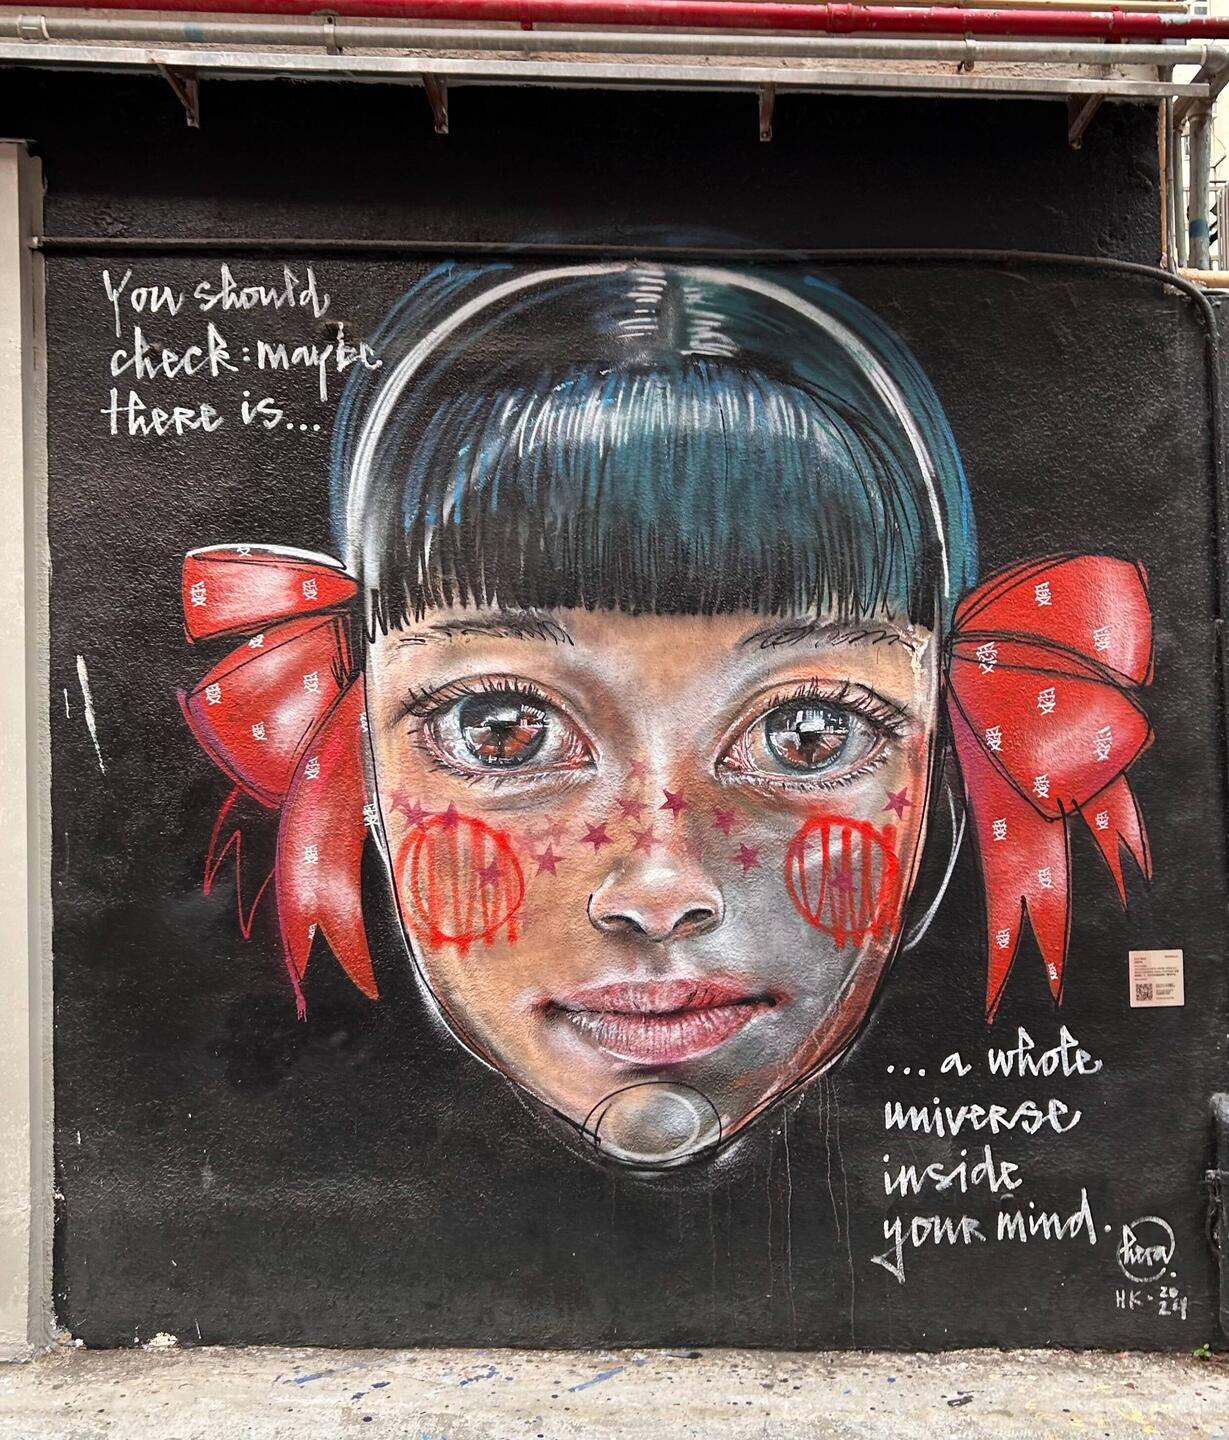 You should
check: maybe
there is...
...a whole
universe
inside
your mind.
hera
HK. 20
24